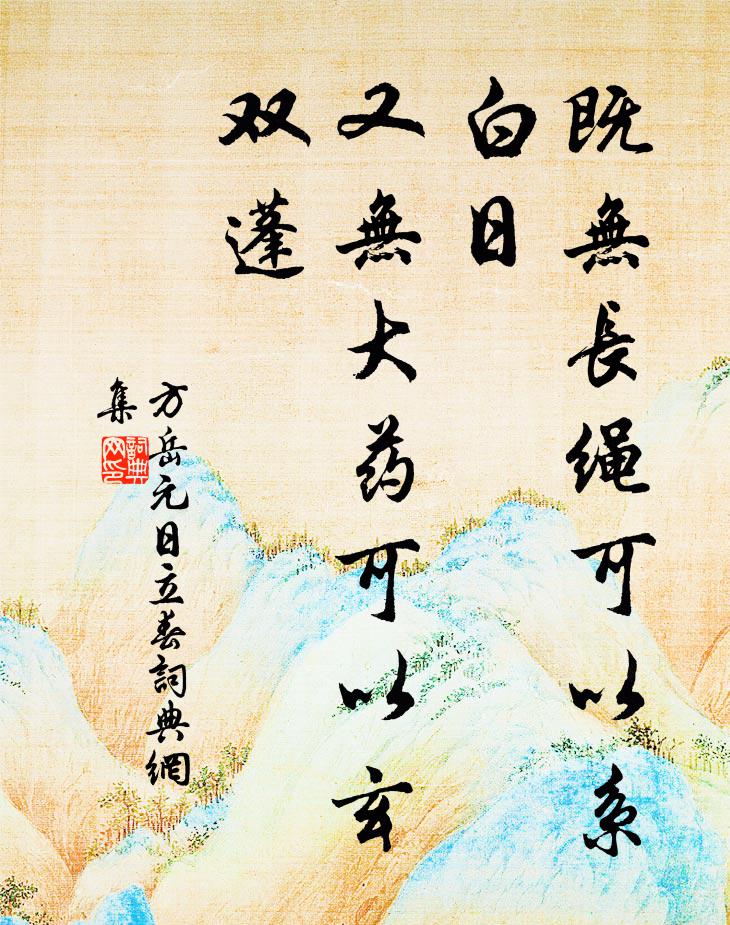 既無長绳可以系
白日
又無大药可以玄
双蓬
方岳元日立春詞典網
集
詞典
网印